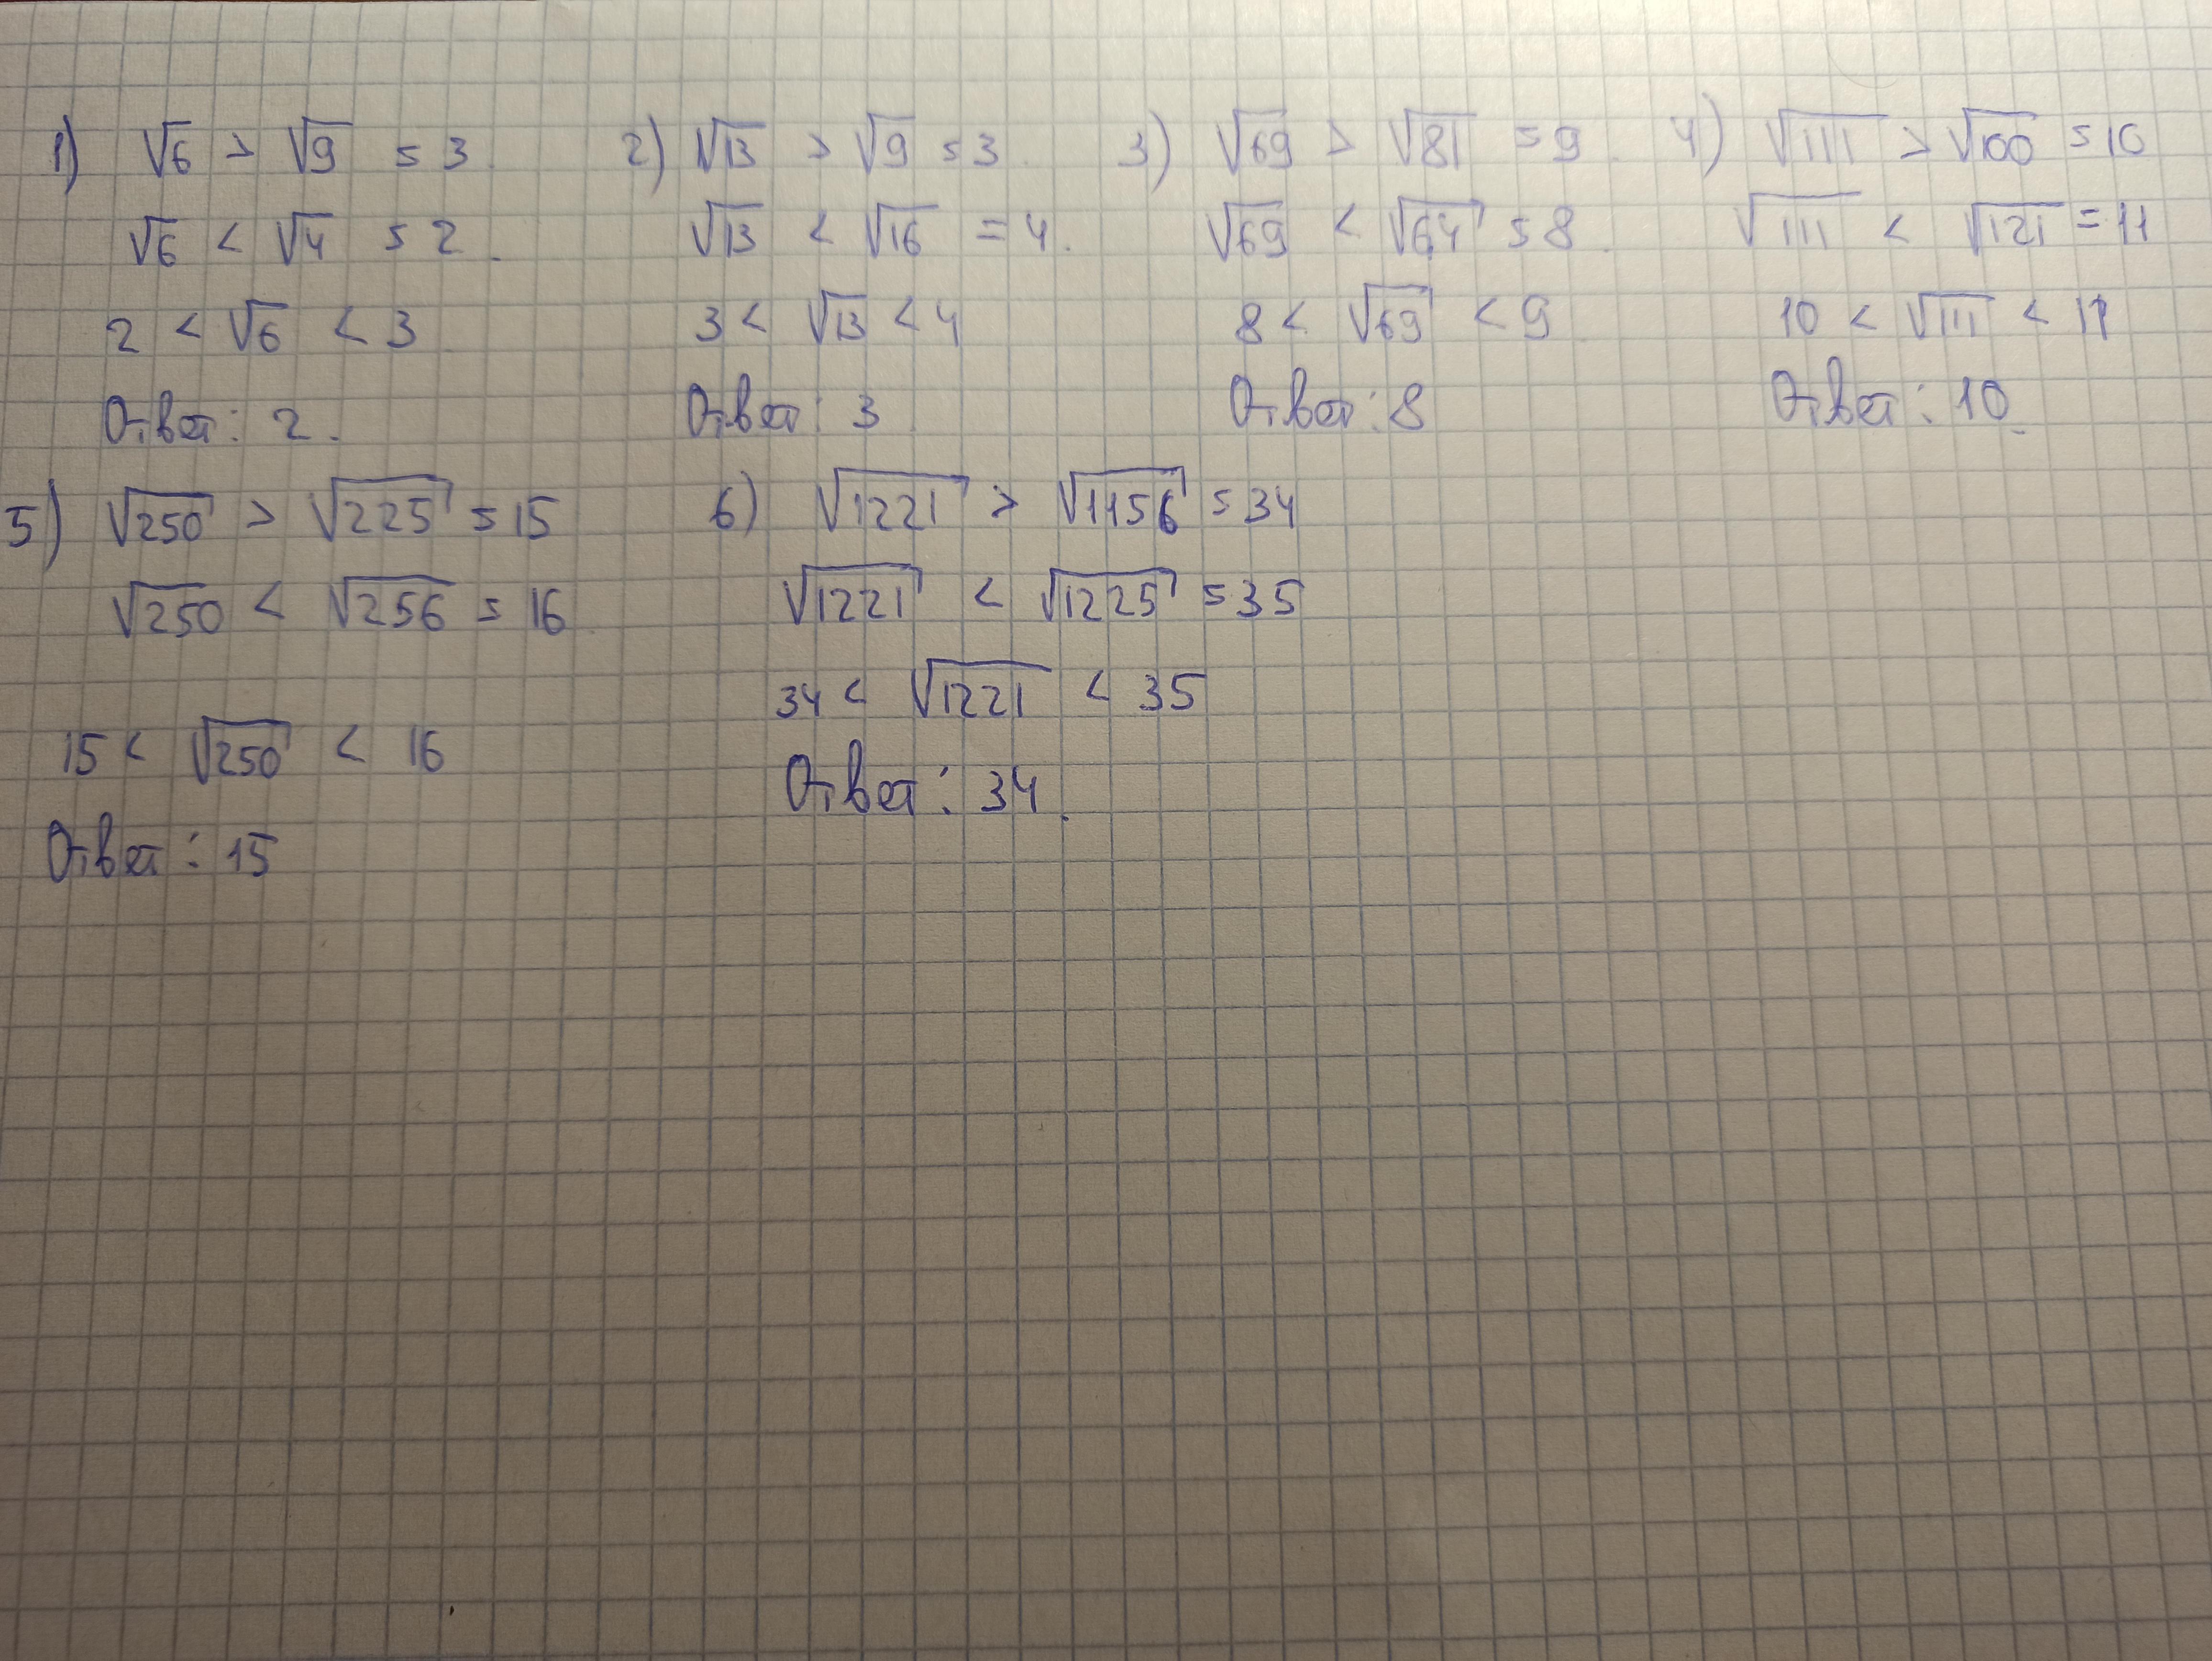 1) √6 > √9 = 3
√6 < √4 = 2.
2 < √6 < 3
Ответ: 2.
2) √13 > √9 = 3
√13 < √16 = 4.
3 < √13 < 4
Ответ: 3
3) √69 > √81 = 9
√69 < √64 = 8
8 < √69 < 9
Ответ: 8
4) √111 > √100 = 10
√111 < √121 = 11
10 < √111 < 11
Ответ: 10
5) √250 > √225 = 15
√250 < √256 = 16
15 < √250 < 16
Ответ: 15
6) √1221 > √1156 = 34
√1221 < √1225 = 35
34 < √1221 < 35
Ответ: 34.